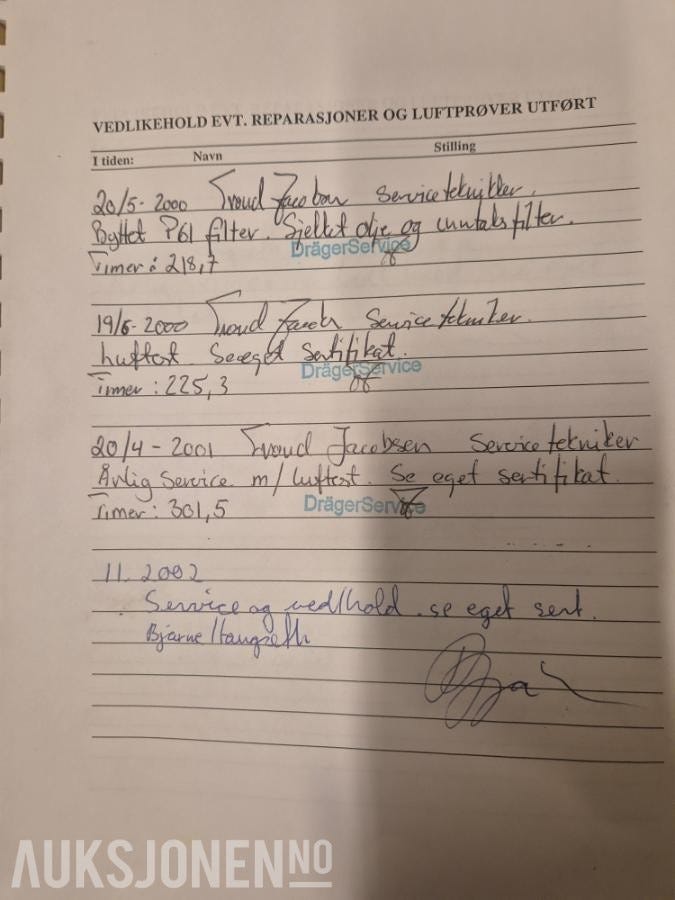 VEDLIKEHOLD EVT. REPARASJONER OG LUFTPRØVER UTFØRT
I tiden: Navn Stilling
20/5-2000 Trond Jacobsen Servicetekniker.
Byttet P61 filter. Sjekket olje og inntaksfilter.
DrägerService
Timer: 218,7
19/6-2000 Trond Servicetekniker.
Luftest. Se eget sertifikat.
DrägerService
Timer: 225,3
20/4-2001 Trond Jacobsen Servicetekniker
Årlig Service m/ luftest. Se eget sertifikat.
DrägerService
Timer: 301,5
11.2002
Service og vedlhold. se eget sert.
Bjarne
AUKSJONEN.NO